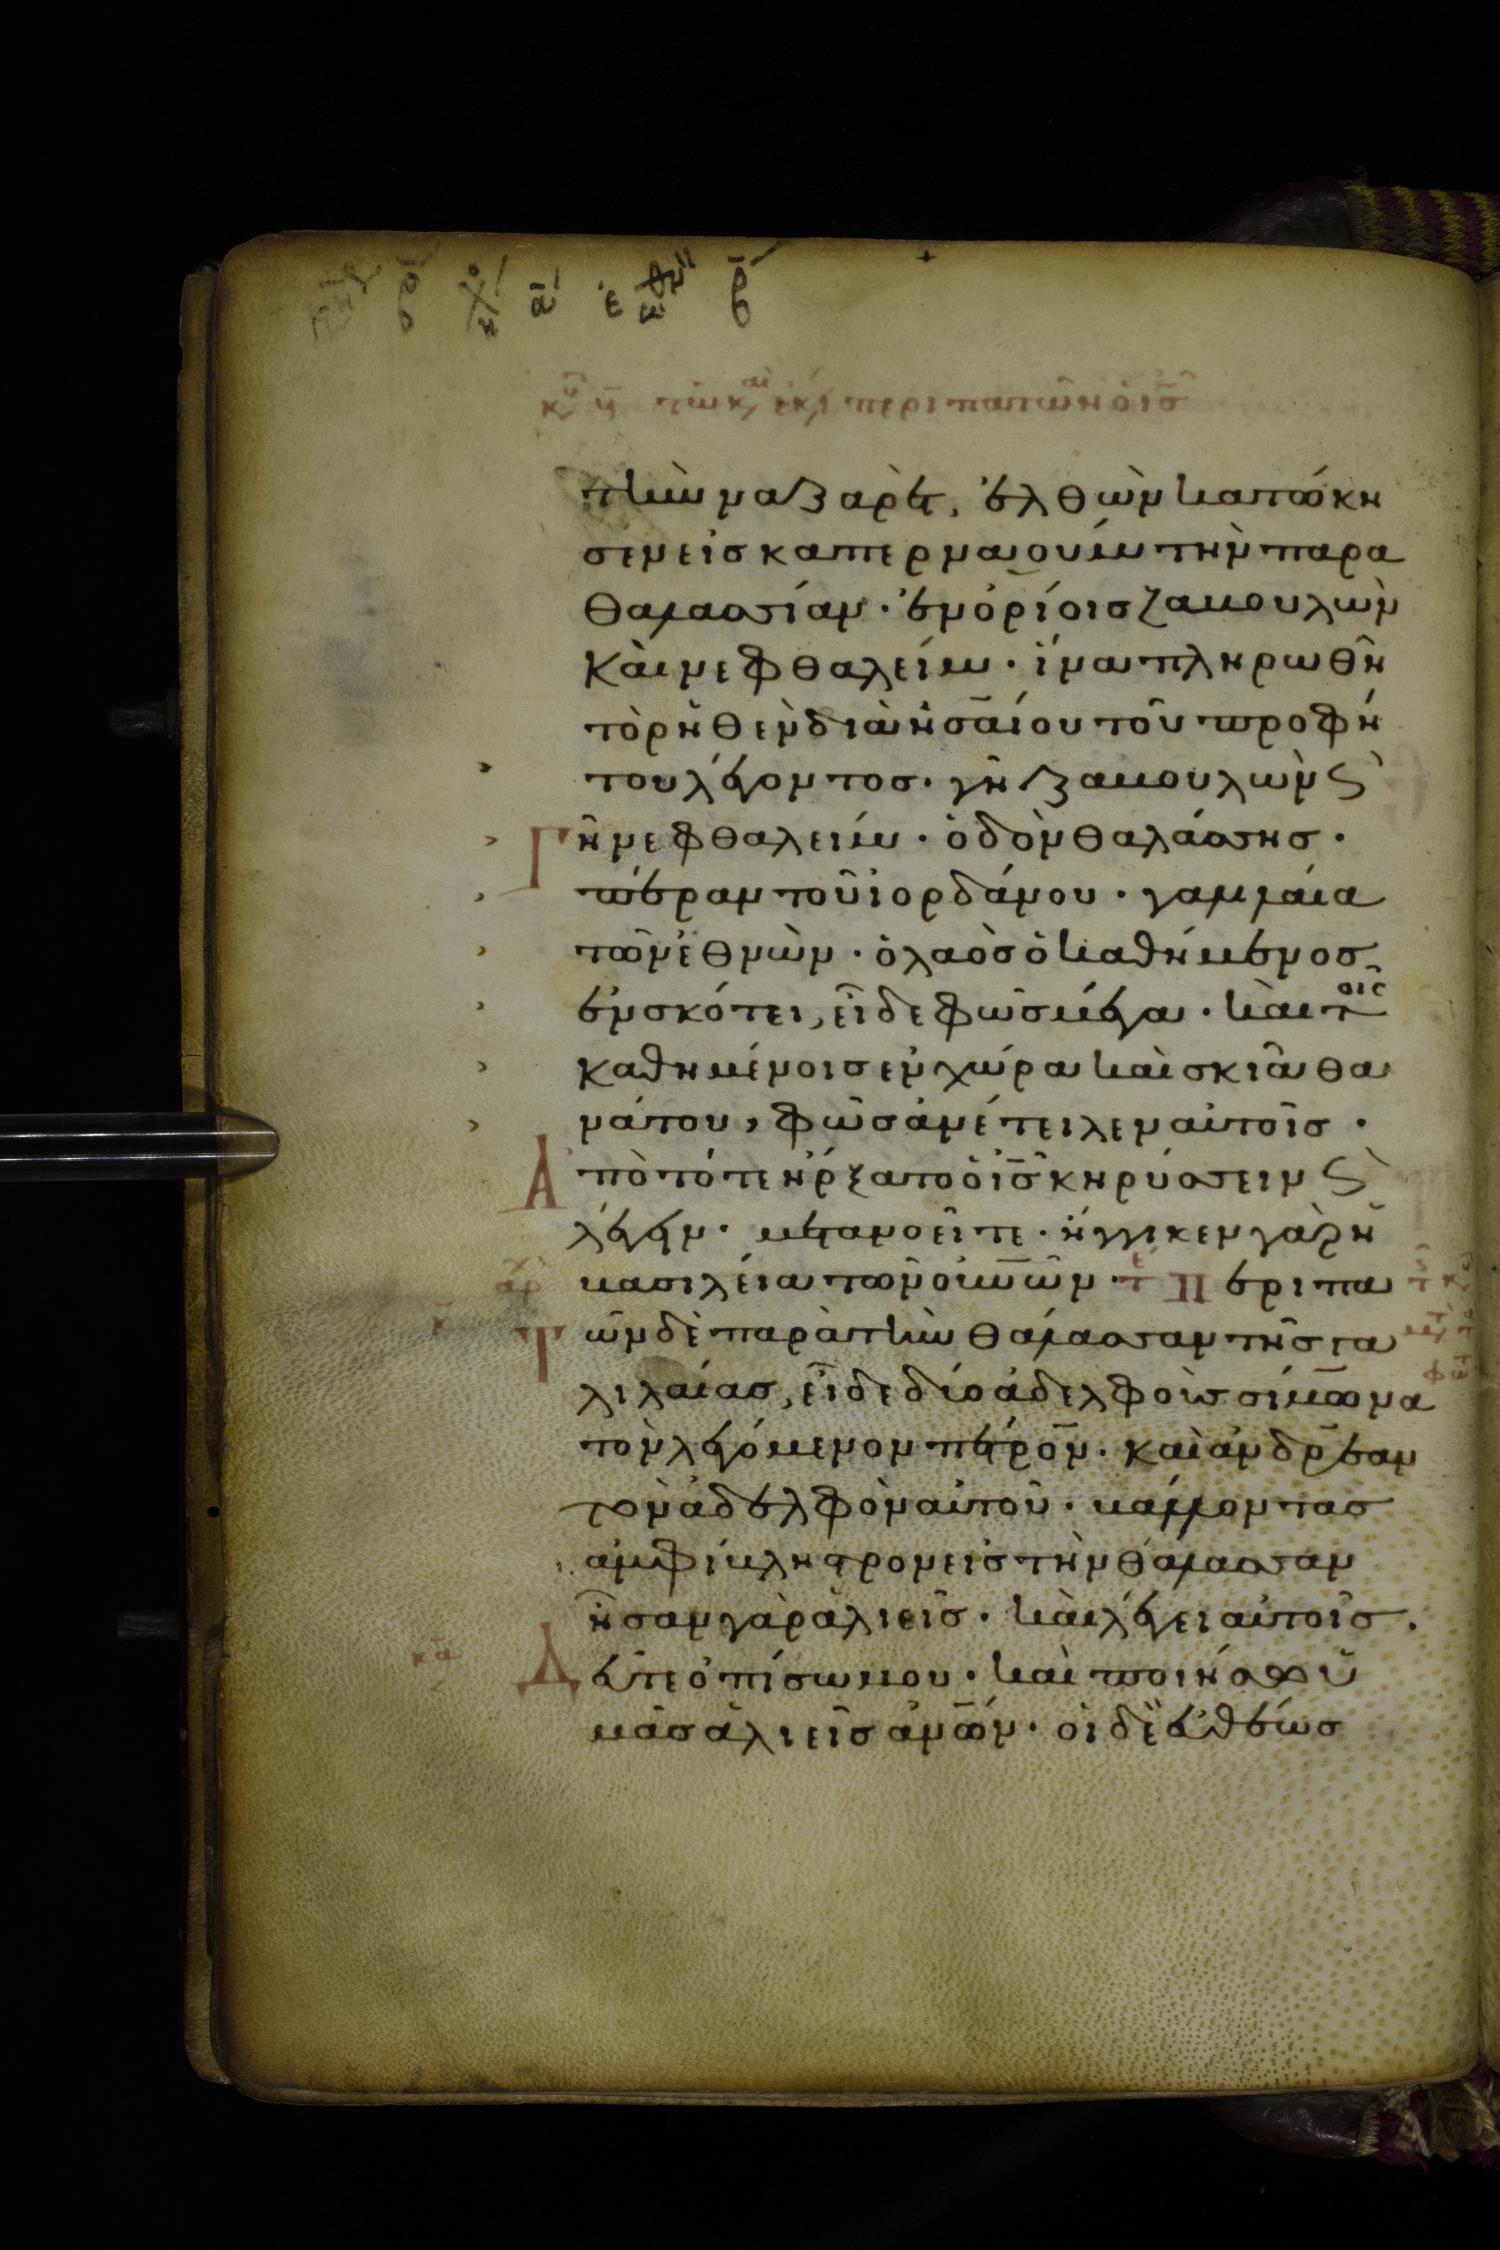 τὴν ναζαρέτ, ἐλθὼν κατώκη
σεν εἰς καπερναοὺμ τὴν παρα
θαλασσίαν · ἐν ὁρίοις ζαβουλὼν
καὶ νεφθαλείμ · ἵνα πληρωθῆ
τὸ ρηθὲν διὰ ἠσαΐου τοῦ προφή
του λέγοντος · γῆ ζαβουλὼν ϛ̀
Γῆ νεφθαλείμ · ὁδὸν θαλάσσης ·
πέραν τοῦ ἰορδάνου · γαλιλαία
τῶν ἐθνῶν · ὁ λαὸς ὁ καθήμενος
ἐν σκότει, εἶδε φῶς μέγα · καὶ τοῖς
καθημένοις ἐν χώρα καὶ σκιᾶ θα
νάτου, φῶς ἀνέτειλεν αὐτοῖς ·
Ἀπὸ τότε ἤρξατο ὁ ις̅ κηρύσσειν ϛ̀
λέγειν · μετανοεῖτε · ἤγγικεν γὰρ ἡ
αρχ βασιλεία τῶν οὐν̅ῶν · τε Περιπα
κ̅ Τῶν δὲ παρὰ τὴν θάλασσαν τῆς γα
λιλαίας, εἶδε δύο ἀδελφοὺς σίμωνα
τὸν λεγόμενον πέτρον · καὶ ἀνδρέαν
τὸν ἀδελφὸν αὐτοῦ · βάλλοντας
ἀμφίβληστρον εἰς τὴν θάλασσαν
ἦσαν γὰρ ἁλιεῖς · καὶ λέγει αὐτοῖς ·
κα̅ Δεῦτε ὀπίσω μου · καὶ ποιήσω ὑ
μᾶς ἁλιεῖς ἀν̅ων · οἱ δὲ εὐθέως